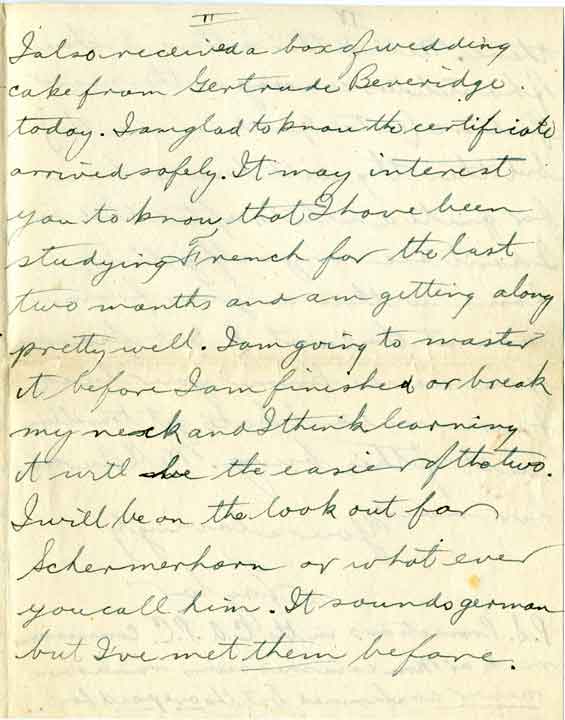 II
I also received a box of wedding
cake from Gertrude Beveridge
today. I am glad to know the certificate
arrived safely. It may interest
you to know that I have been
studying French for the last
two months and am getting along
pretty well. I am going to master
it before I am finished or break
my neck and I think learning
it will be the easier of the two.
I will be on the look out for
Schermerhorn or what ever
you call him. It sounds german
but I've met them before.